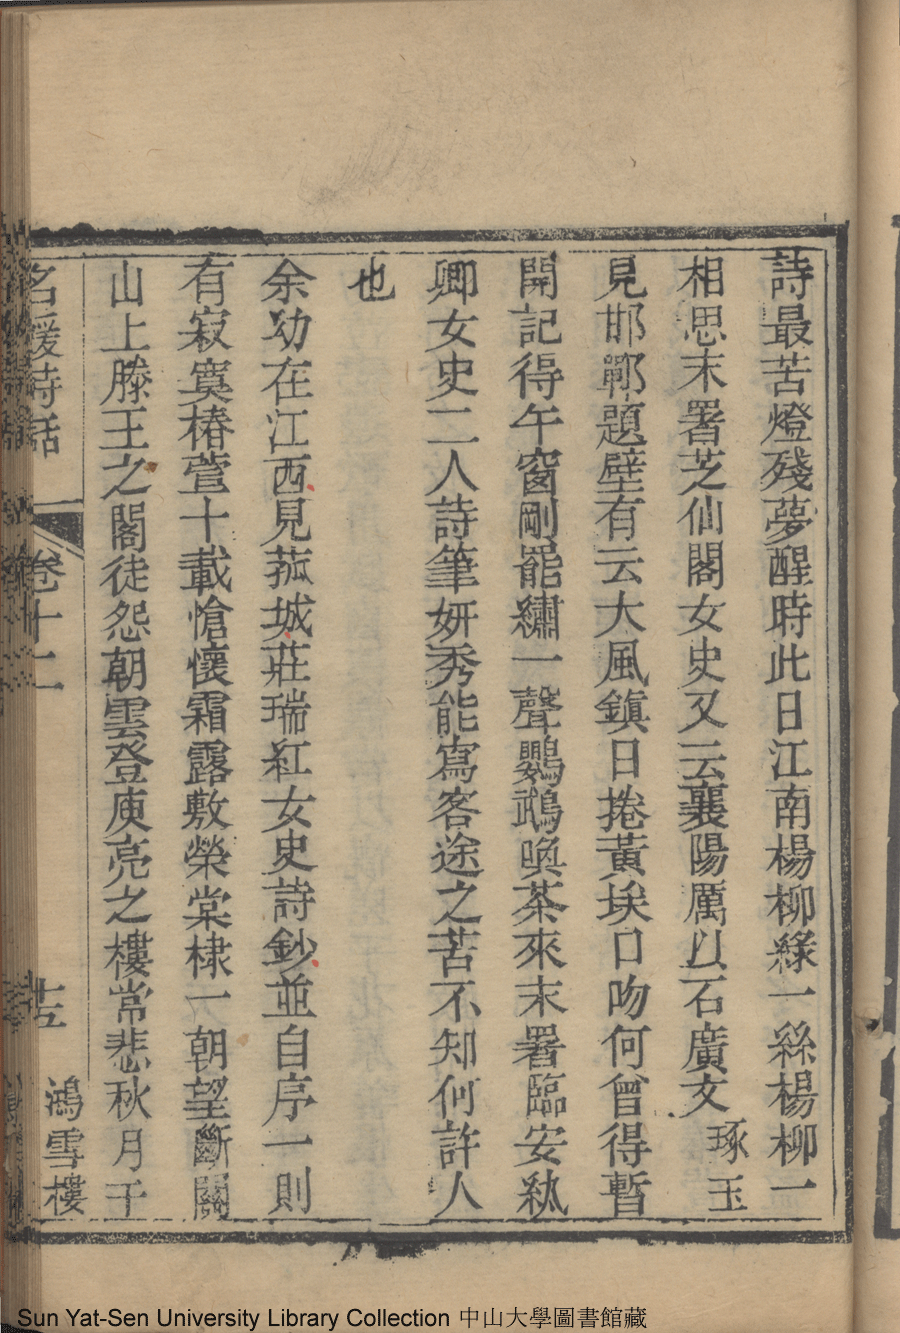 詩最苦燈殘夢醒時此日江南楊柳綠一絲楊柳一
相思末署芝仙閣女史又云襄陽厲以石廣文琢玉
見邯鄲題壁有云大風鎮日捲黃埃口吻何曾得暫
開記得午窗剛罷繡一聲鸚鵡喚茶來末署臨安紉
卿女史二人詩筆妍秀能寫客途之苦不知何許人
也
余幼在江西見菰城莊瑞紅女史詩鈔並自序一則
有寂寞椿萱十載愴懷霜露敷榮棠棣一朝望斷關
山上滕王之閣徒怨朝雲登庾亮之樓常悲秋月干
名媛詩話 卷十二 十五 鴻雪樓
Sun Yat-Sen University Library Collection 中山大學圖書館藏